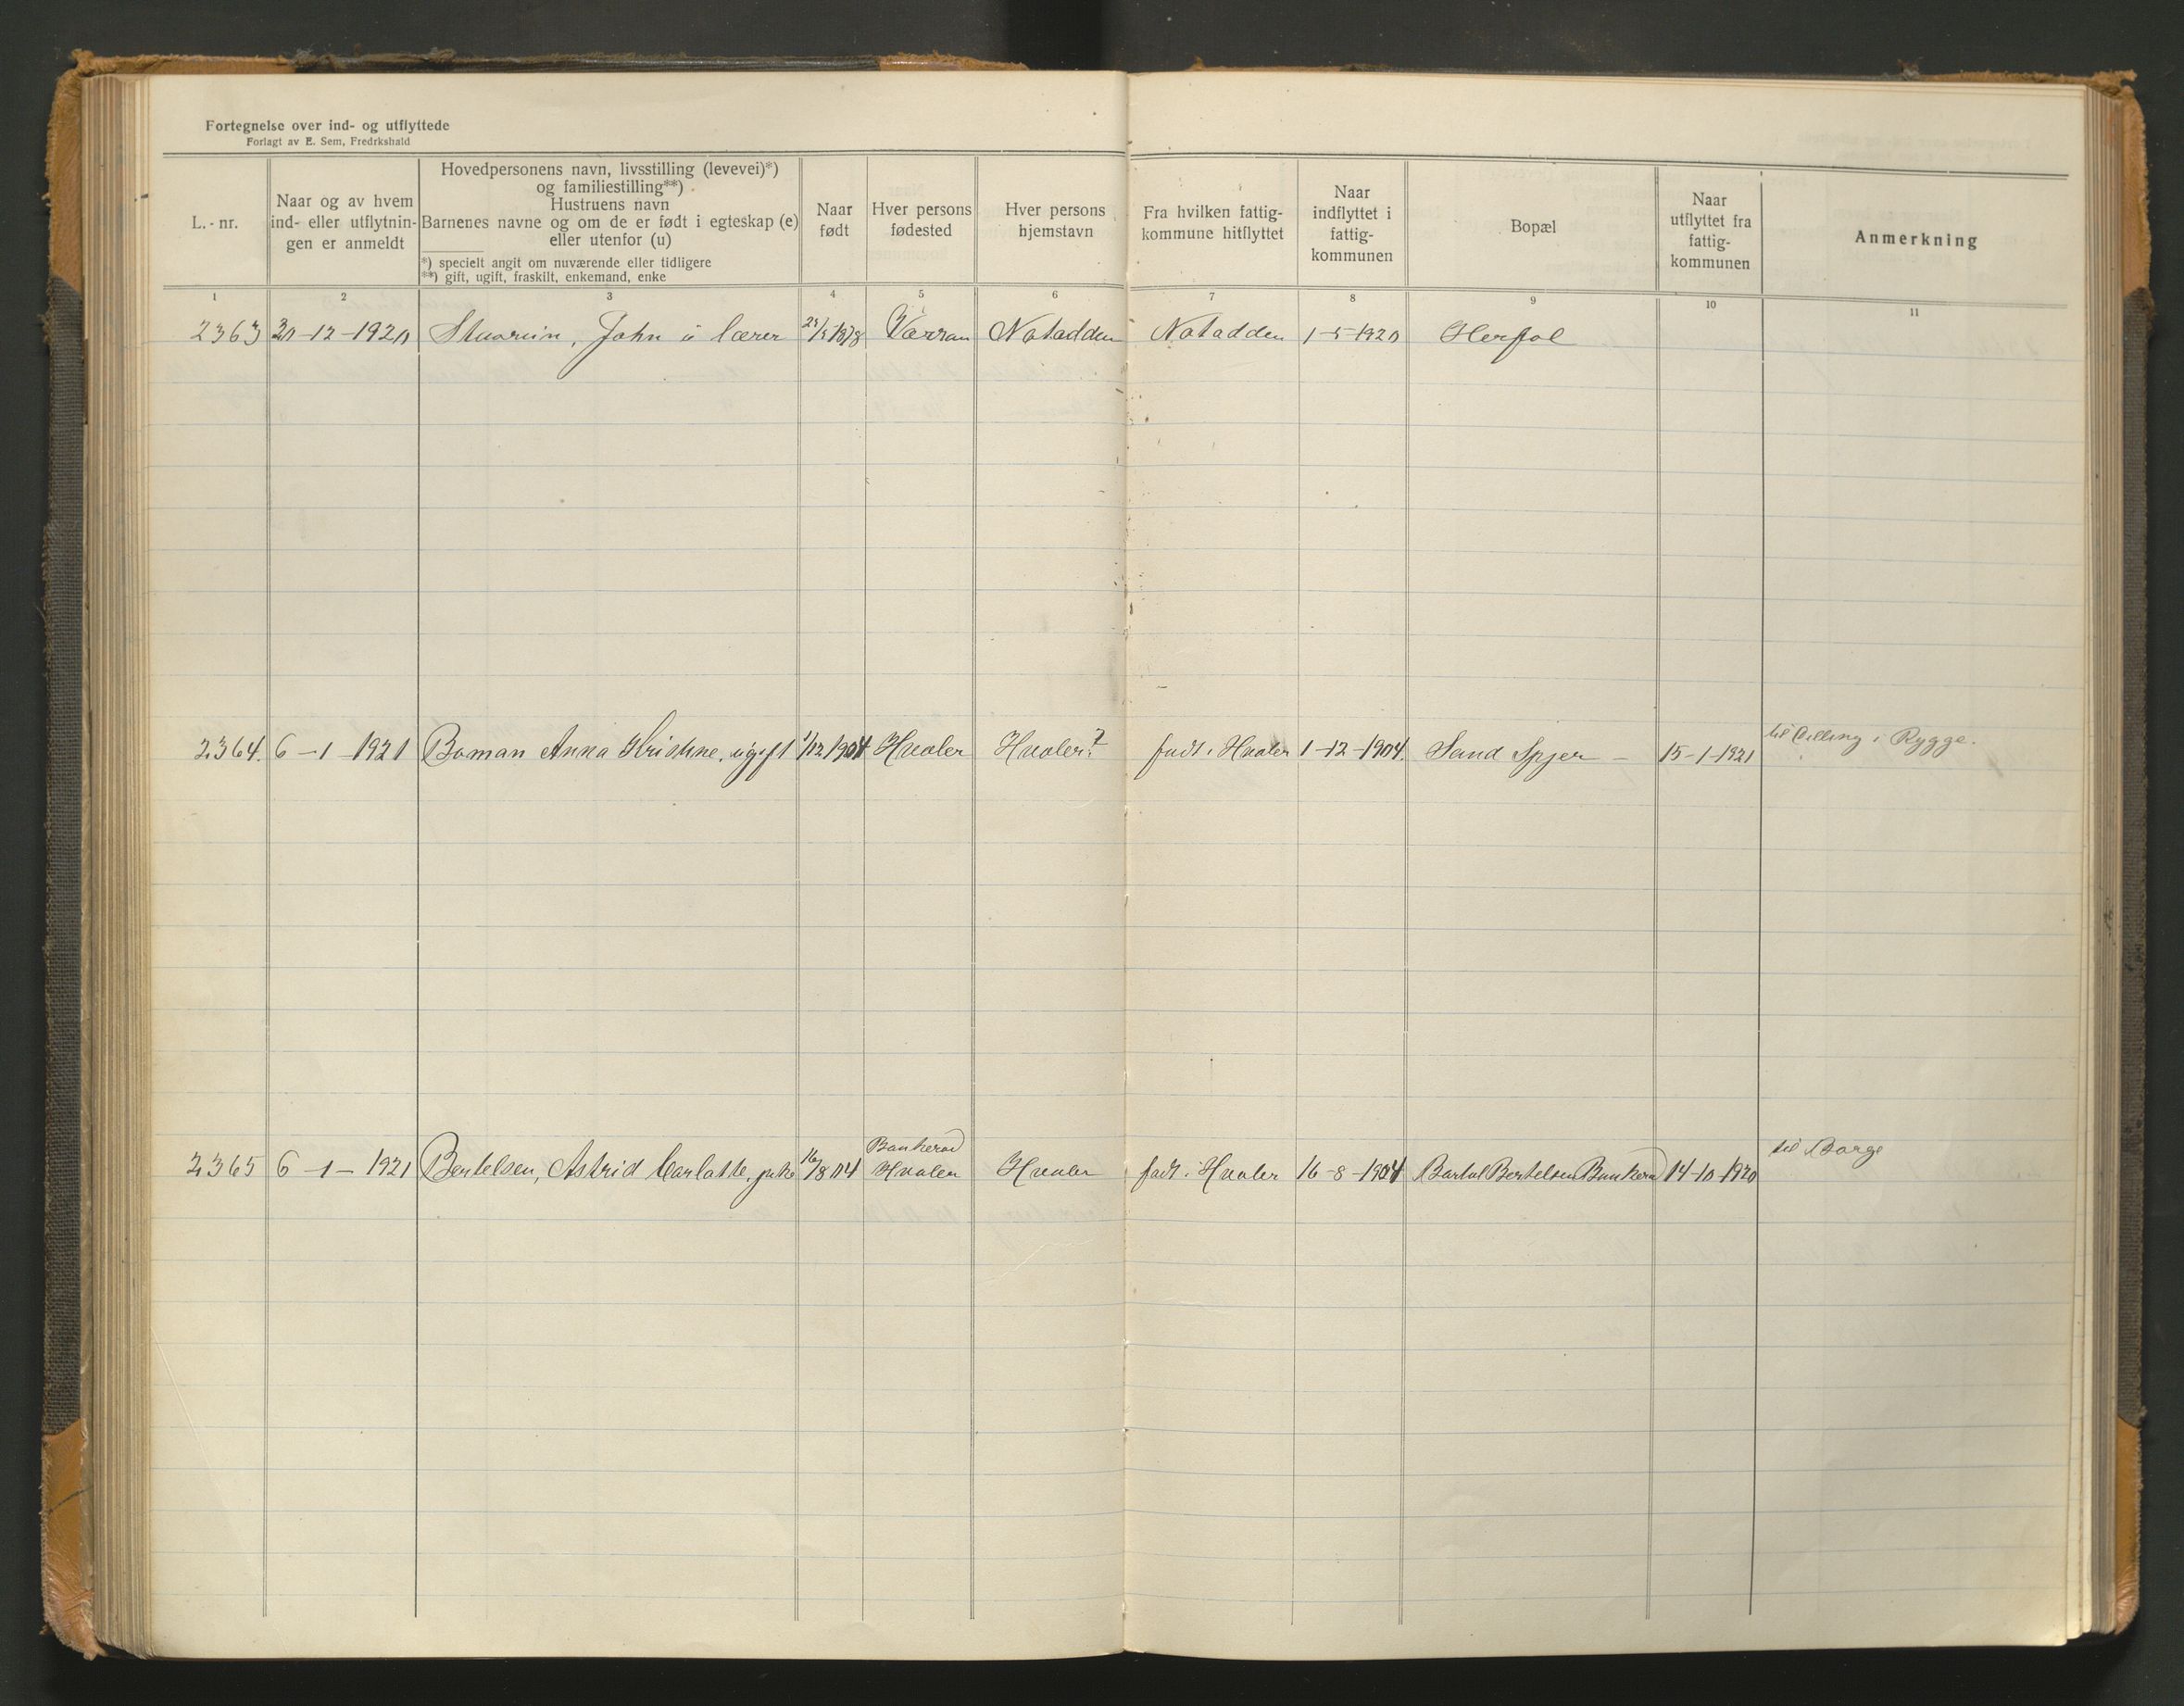 Fortegnelse over ind- og utflyttede
Forlagt av E. Sem, Fredrkshald
L.-nr.
Naar og av hvem
ind- eller utflytnin-
gen er anmeldt
Hovedpersonens navn, livsstilling (levevei)*)
og familiestilling**)
Hustruens navn
Barnenes navne og om de er født i egteskap (e)
eller utenfor (u)
*) specielt angit om nuværende eller tidligere
**) gift, ugift, fraskilt, enkemand, enke
Naar
født
Hver persons
fødested
Hver persons
hjemstavn
Fra hvilken fattig-
kommune hitflyttet
Naar
indflyttet i
fattig-
kommunen
Bopæl
Naar
utflyttet fra
fattig-
kommunen
Anmerkning
1 2 3 4 5 6 7 8 9 10 11
2363 30-12-1920 John ú lærer Notadden Notadden 1-5-1920 Herføl
til Dilling i Rygge.
2364. 6-1-1921 Boman Anna Kristine, ugift 1/12 1904 Hvaler Hvaler? født i Hvaler 1-12-1904. Sand Spjer - 15-1-1921
Bankerød til Borge
2365 6-1-1921 Bertelsen, Astrid Carlotte, 16/8 04 Hvaler Hvaler født i Hvaler 16-8-1904 Bertelsen Bankerø 14-10-1920